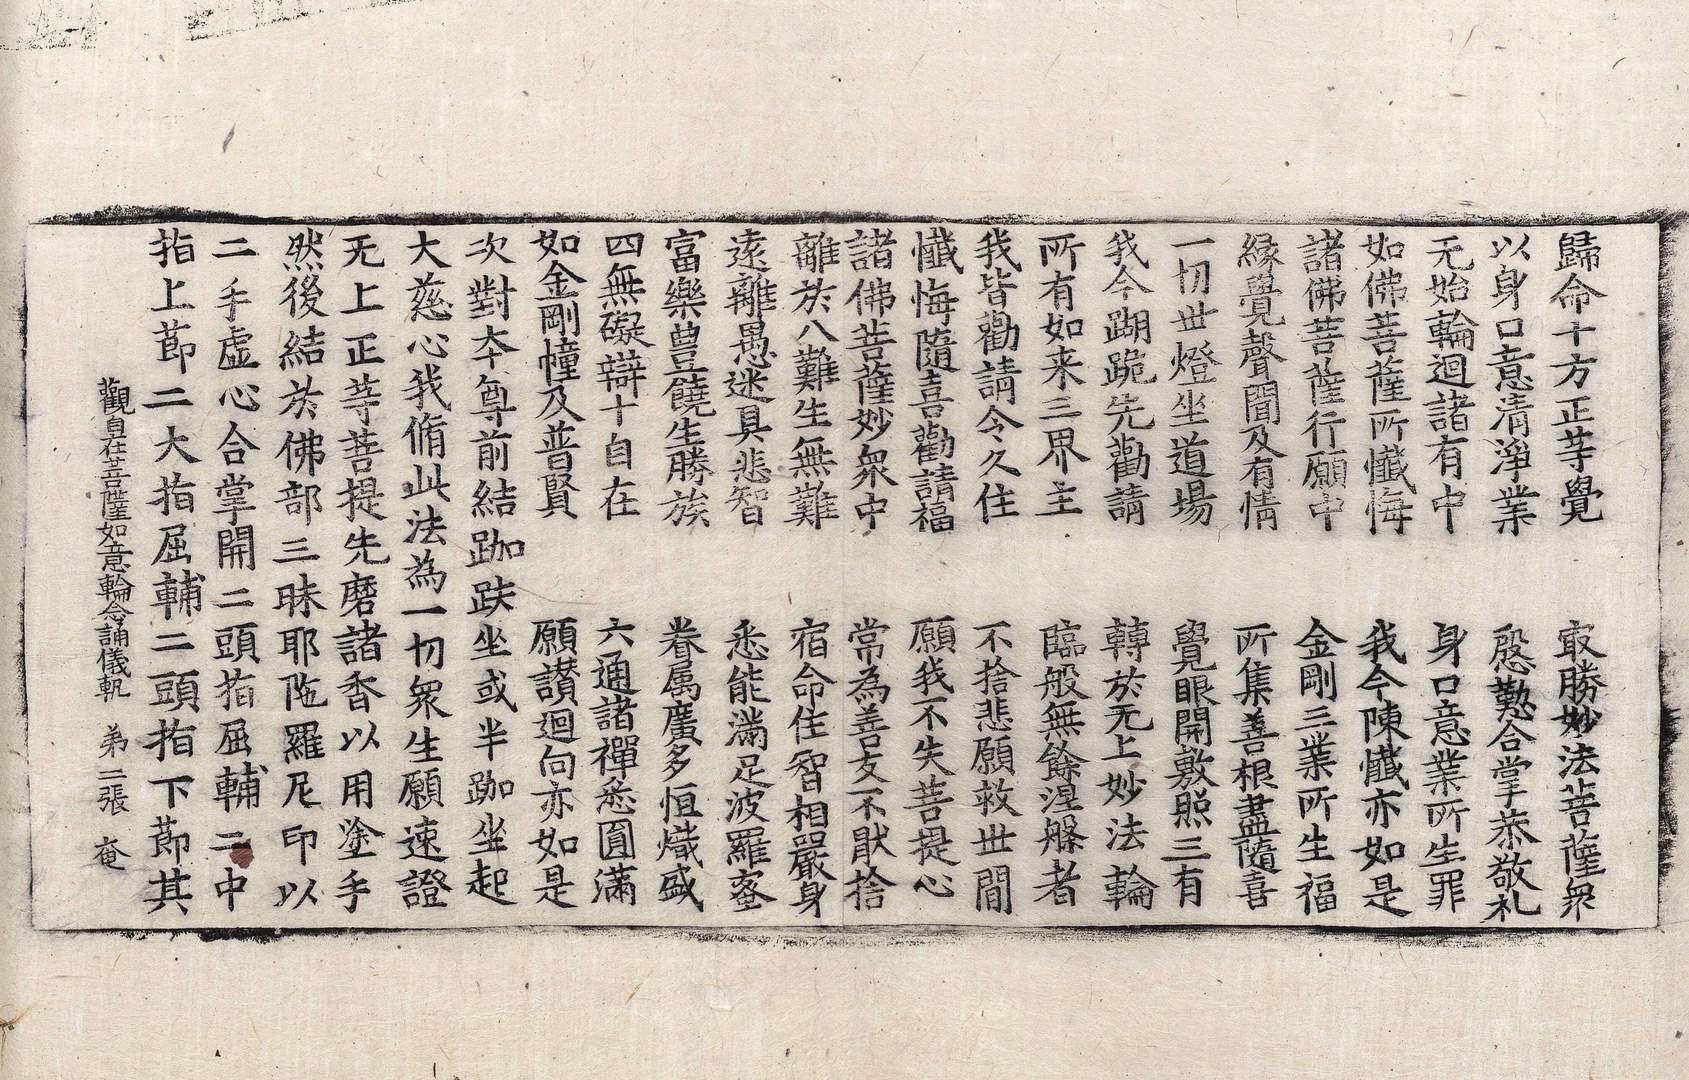 歸命十方正等覺　冣勝妙法菩薩衆
以身口意清淨業　慇懃合掌恭敬礼
无始輪迴諸有中　身口意業所生罪
如佛菩薩所懺悔　我今陳懺亦如是
諸佛菩薩行願中　金剛三業所生福
縁覺聲聞及有情　所集善根盡隨喜
一切世燈坐道場　覺眼開敷照三有
我今䠒跪先勸請　轉於无上妙法輪
所有如来三界主　臨般無餘涅槃者
我皆勸請令久住　不捨悲願救世間
懺悔隨喜勸請福　願我不失菩提心
諸佛菩薩妙衆中　常為善友不猒捨
離於八難生無難　宿命住智相嚴身
遠離愚迷具悲智　悉能滿足波羅蜜
富樂豊饒生勝族　眷属廣多恒熾盛
四無礙辯十自在　六通諸禪悉圓滿
如金剛幢及普賢　願讃迴向亦如是
次對夲尊前結跏趺坐或半跏坐起
大慈心我脩此法為一切衆生願速證
无上正等菩提先磨諸香以用塗手
然後結於佛部三昧耶陁羅尼印以
二手虚心合掌開二頭指屈輔二中
指上莭二大指屈輔二頭指下莭其
觀自在菩薩如意輪念誦儀軌　苐二張　奄